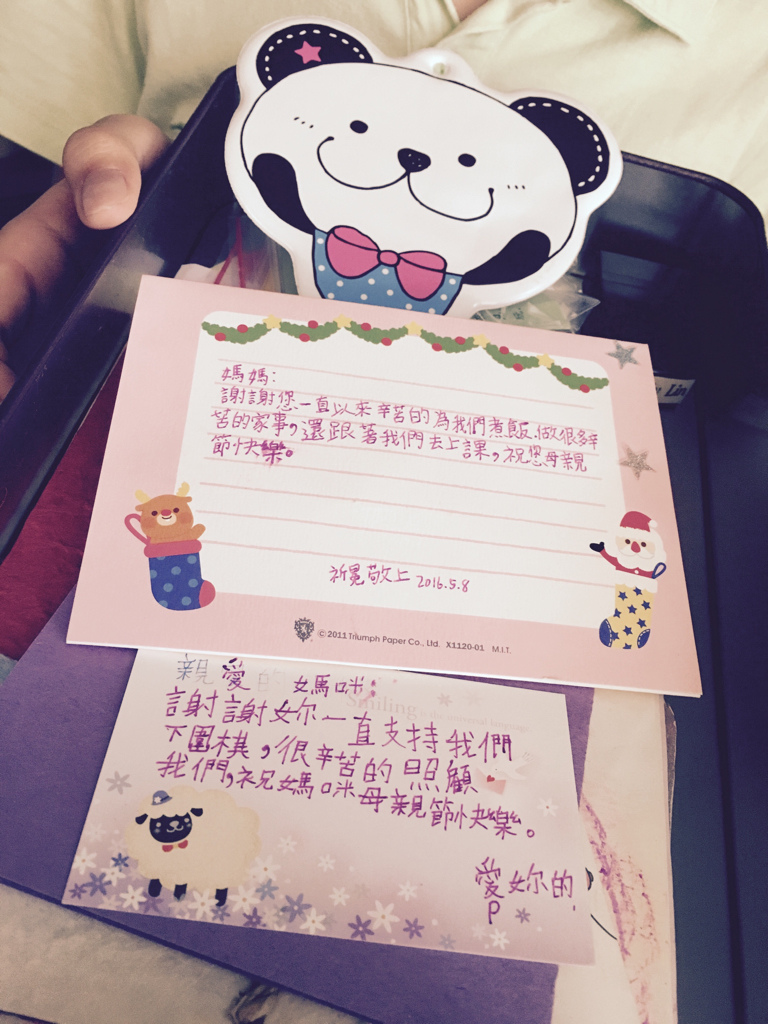 媽媽:
謝謝您一直以來辛苦的為我們煮飯、做很多辛
苦的家事,還跟著我們去上課,祝您母親
節快樂。
敬上 2016.5.8
© 2011 Triumph Paper Co., Ltd. X1120-01 M.I.T.
Lin
親愛的 媽咪:
Smiling is the universal language
謝謝妳一直支持我們
下圍棋,很辛苦的照顧
我們,祝媽咪母親節快樂。
愛妳的
P